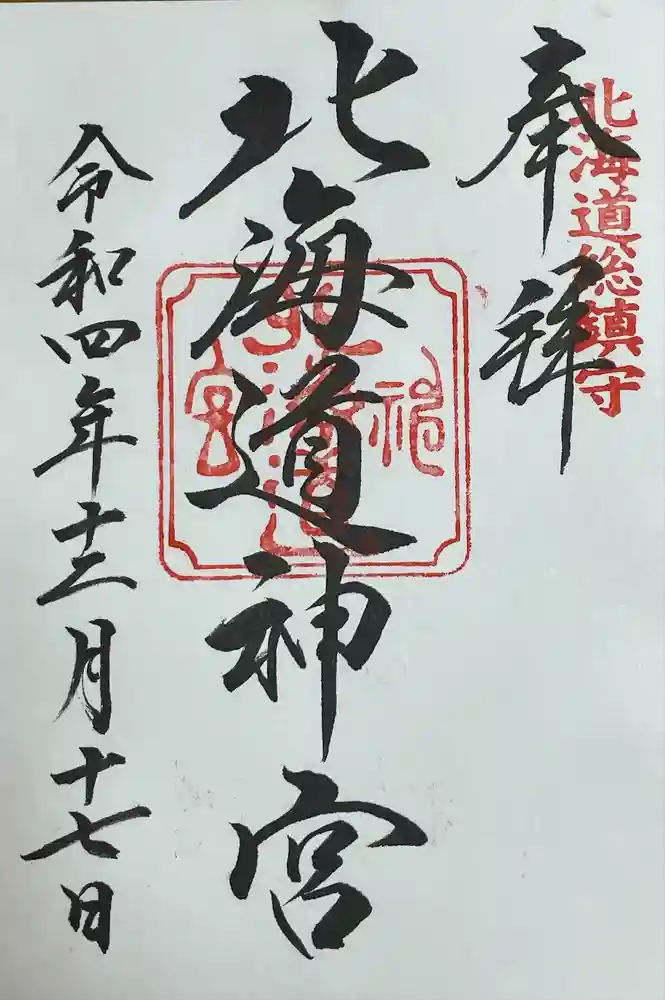 奉拝
北海道総鎮守
北海道神宮
北海道神宮
令和四年十二月十七日